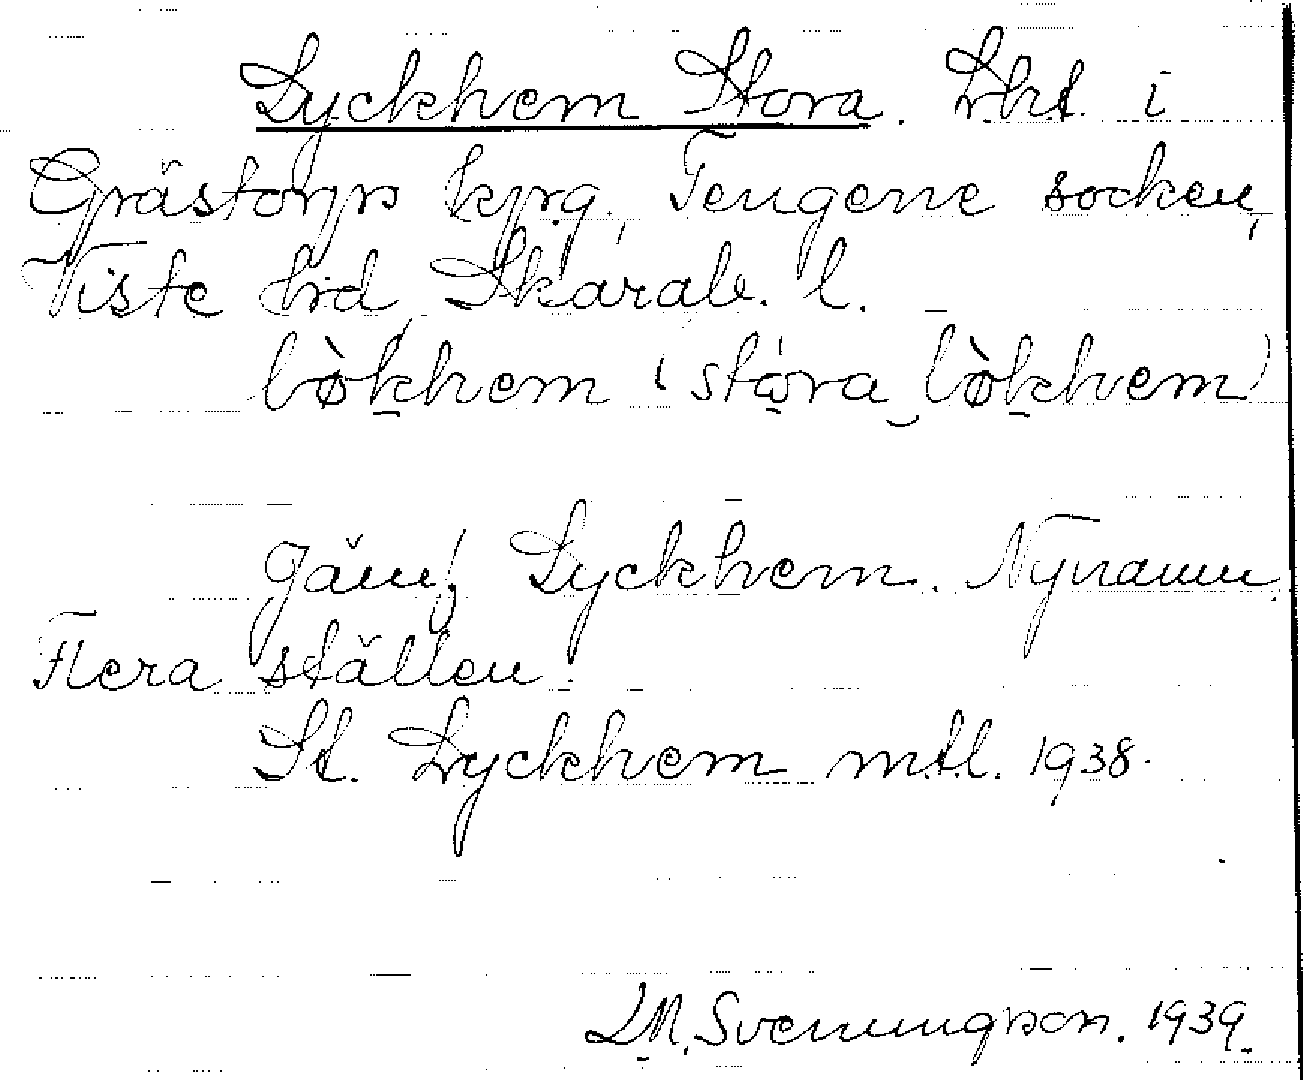 Lyckhem Stora. Lht. i
Grästorps kpg, Tengene socken,
Viste hrd Skarab. l.
lø̀k̲hem (stó̤ra‿lø̀k̲hem)
Jäm! Lyckhem. Nynamn.
Flera ställen.
St. Lyckhem mtl. 1938.
L.M. Svenungson. 1939.